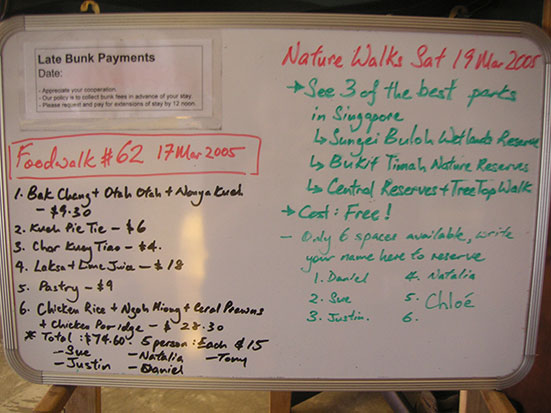 Late Bunk Payments
Date:
- Appreciate your cooperation.
- Our policy is to collect bunk fees in advance of your stay.
- Please request and pay for extensions of stay by 12 noon.
Foodwalk #62 17 Mar 2005
1. Bak Chang + Otah Otah + Nonya Kueh
- $9.30
2. Kueh Pie Tie - $6
3. Char Kuey Tiao - $4.
4. Laksa + Lime Juice - $18
5. Pastry - $9
6. Chicken Rice + Ngoh Hiong + Ceral Prawns
+ Chicken Porridge - $28.30
* Total: $74.60. 5 person: Each $15
- Sue - Natalia - Tomy
- Justin - Daniel
Nature Walks Sat 19 Mar 2005
→ See 3 of the best parts
in Singapore
↳ Sungei Buloh Wetlands Reserve
↳ Bukit Timah Nature Reserves
↳ Central Reserves + TreeTop Walk
→ Cost: Free!
- Only 6 spaces available, write
your name here to reserve
1. Daniel 4. Natalia
2. Sue 5. Chloé
3. Justin. 6.